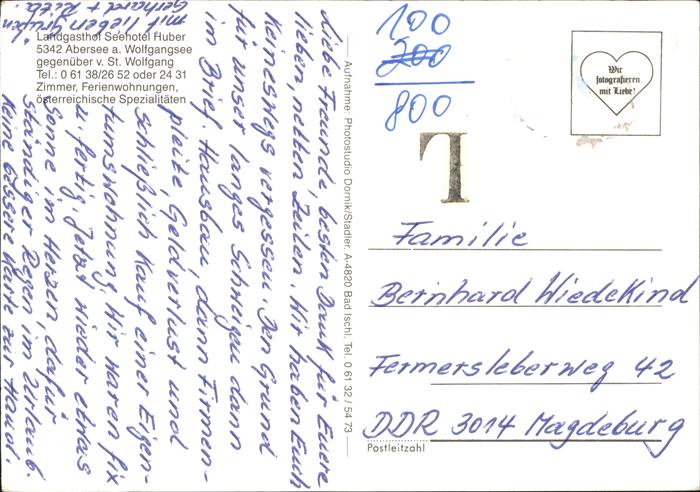 Landgasthof Seehotel Huber
5342 Abersee a. Wolfgangsee
gegenüber v. St. Wolfgang
Tel.: 0 61 38/26 52 oder 24 31
Zimmer, Ferienwohnungen,
österreichische Spezialitäten
Liebe Freunde, besten Dank für Euere
lieben, netten Zeilen. Wir haben Euch
Keineswegs vergessen. Den Grund
für unser langes Schweigen dann
im Brief. Hausbau, dann Firmen-
pleite, Geldverlust und
schließlich Kauf einer Eigen-
tumswohnung. Wir waren fix
u. fertig. Jetzt wieder etwas
Sonne im Herzen, dafür
ständiger Regen im Urlaub.
Keine bessere Karte zur Hand.
mit lieben Grüßen
Gerhard + Rita
Aufnahme: Photostudio Dornik/Stadler, A-4820 Bad Ischl, Tel. 0 61 32 / 54 73
100
200
800
T
Wir
fotografieren
mit Liebe!
Familie
Bernhard Wiedekind
Fermersleberweg 42
DDR 3014 Magdeburg
Postleitzahl